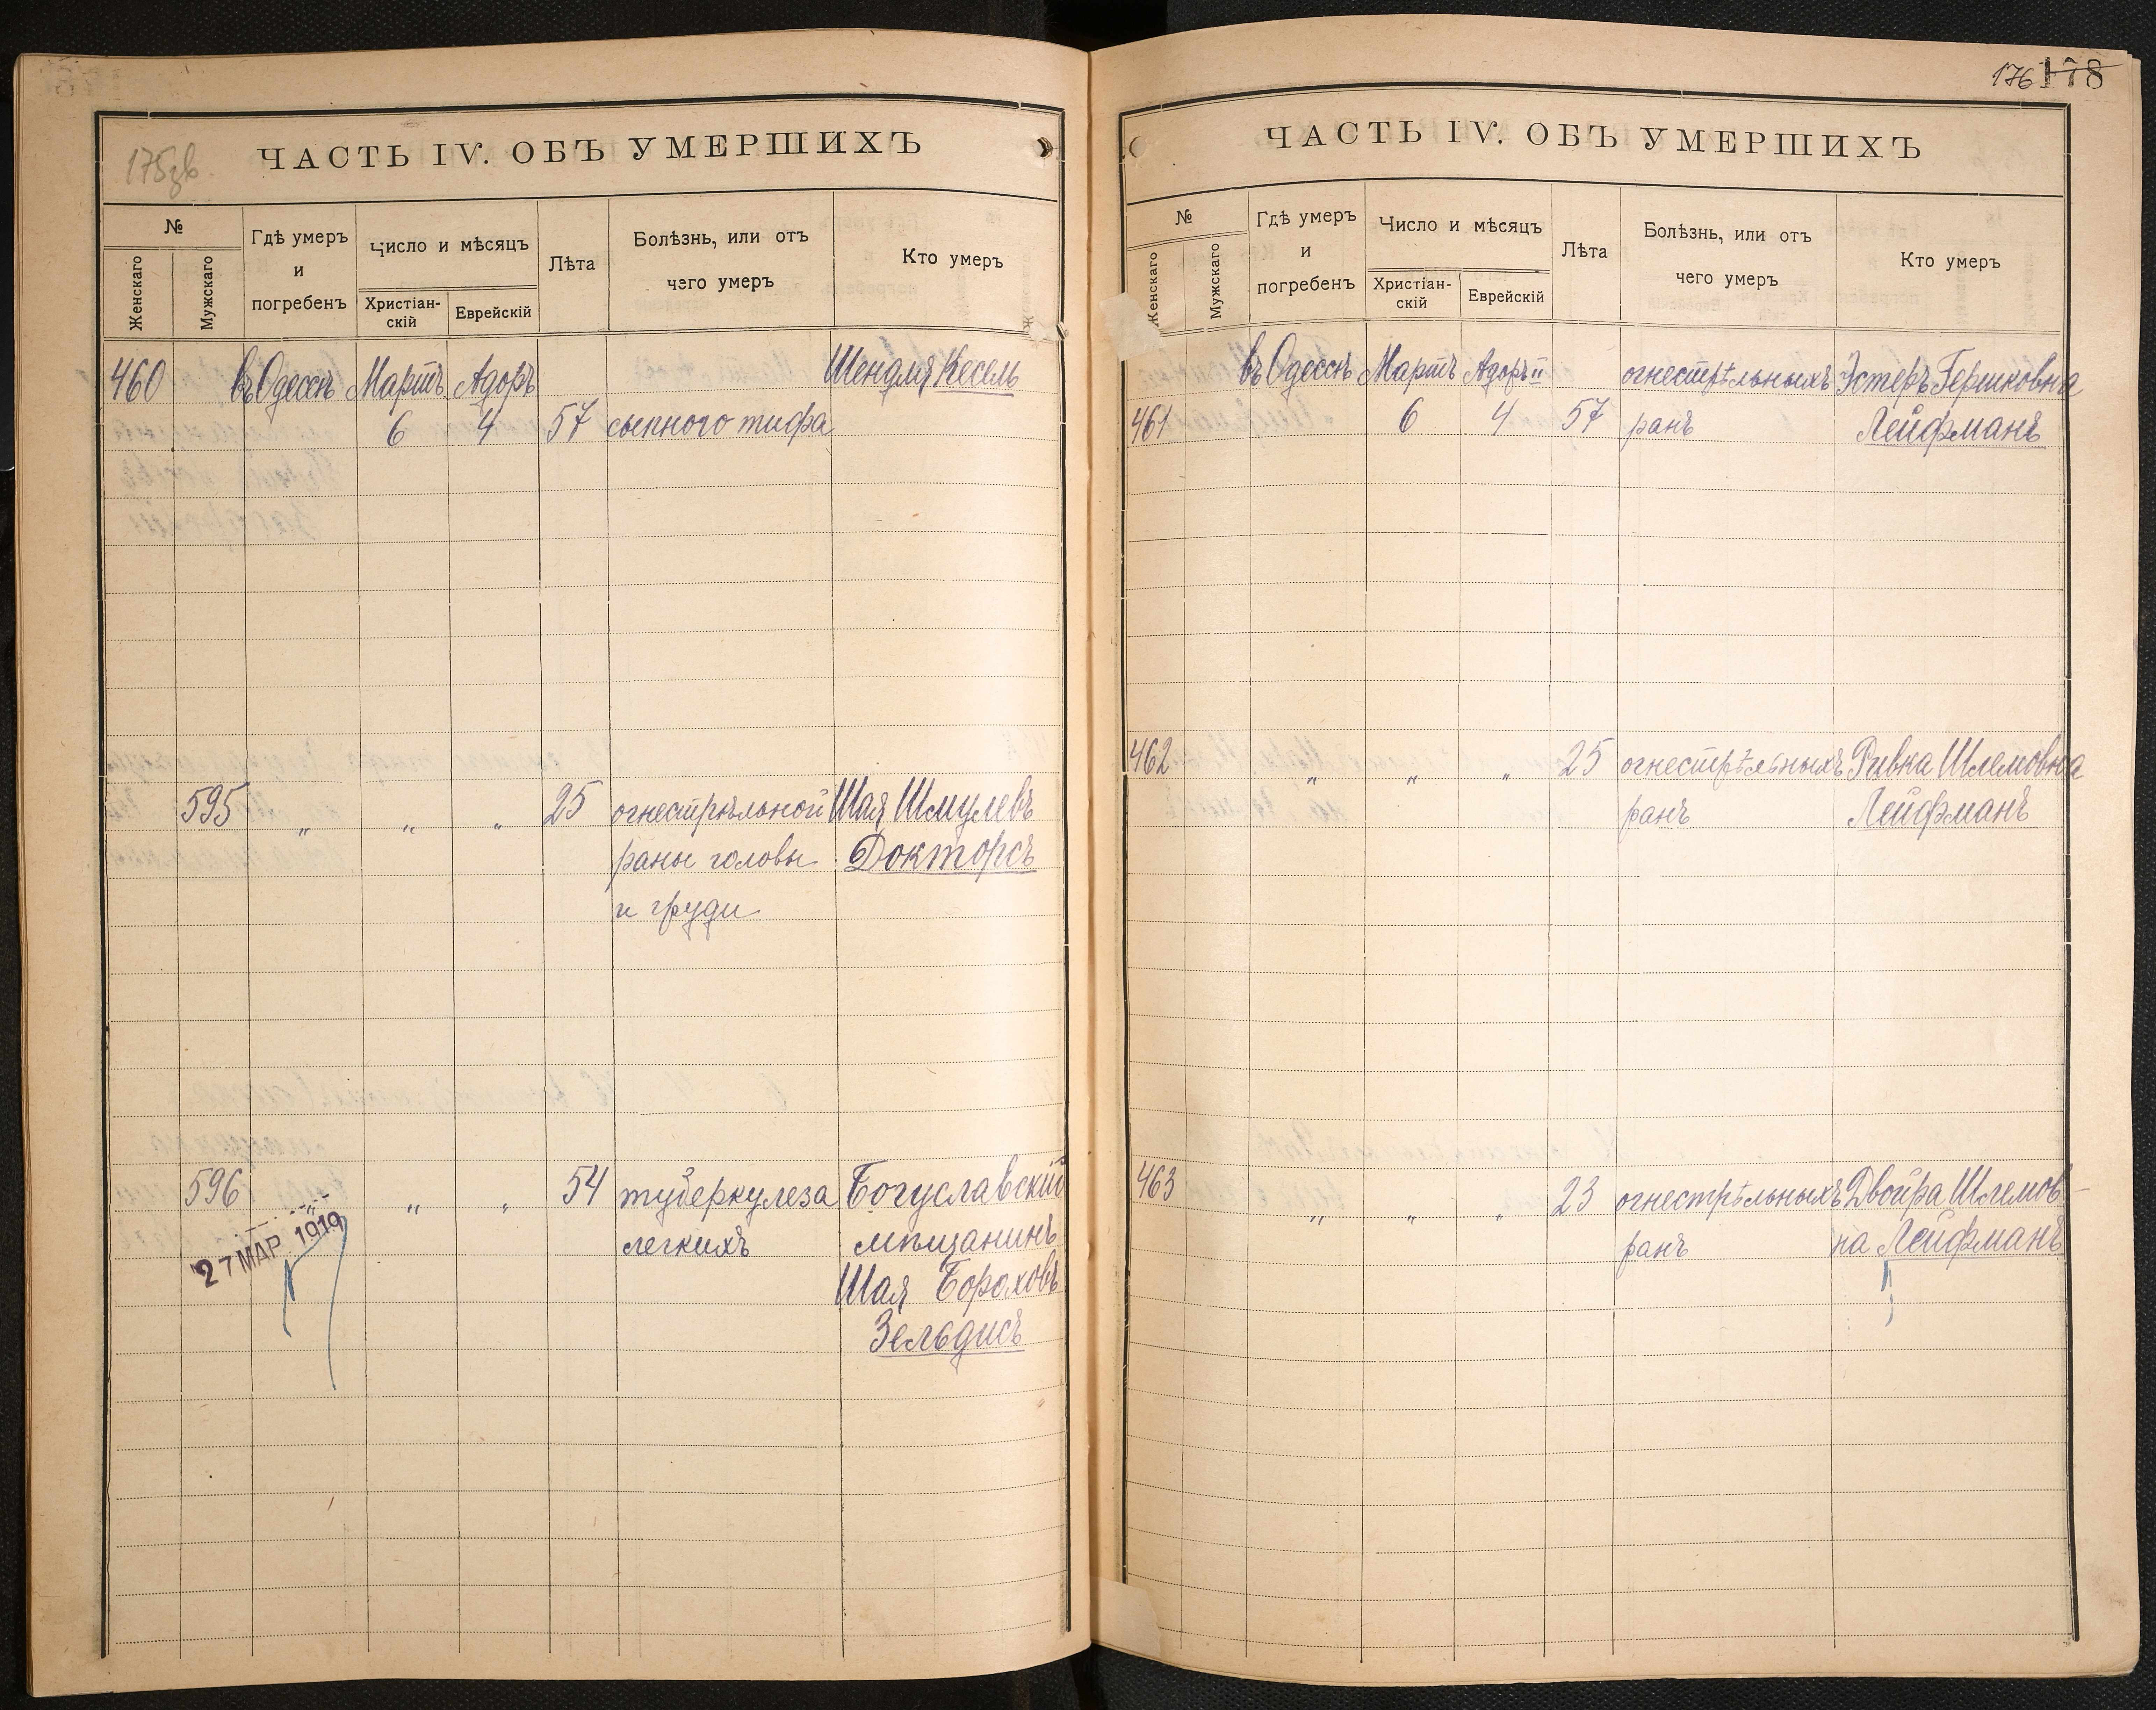 175зв.
ЧАСТЬ IV. ОБЪ УМЕРШИХЪ
№
Женскаго
Мужскаго
Гдѣ умеръ
и
погребенъ
Число и мѣсяцъ
Христіан-
скій
Еврейскій
Лѣта
Болѣзнь, или отъ
чего умеръ
Кто умеръ
460 въ Одессѣ Мартъ Адоръ Шендля Кесель
6 4 57 сыпного тифа
595 „ „ „ 25 огнестрѣльной Шая Шмулевъ
раны головы Докторсъ
и груди
596 „ „ „ 54 туберкулеза Богуславскій
27 МАР 1919 легкихъ мѣщанинъ
Шая Бороховъ
Зельдисъ
176 178
ЧАСТЬ IV. ОБЪ УМЕРШИХЪ
№
Женскаго
Мужскаго
Гдѣ умеръ
и
погребенъ
Число и мѣсяцъ
Христіан-
скій
Еврейскій
Лѣта
Болѣзнь, или отъ
чего умеръ
Кто умеръ
въ Одессѣ Мартъ Адоръ II огнестрѣльныхъ Эстеръ Гершковна
461 6 4 57 ранъ Лейфманъ
462 „ „ „ 25 огнестрѣльныхъ Ривка Шлемовна
ранъ Лейфманъ
463 „ „ „ 23 огнестрѣльныхъ Двойра Шлемов-
ранъ на Лейфманъ